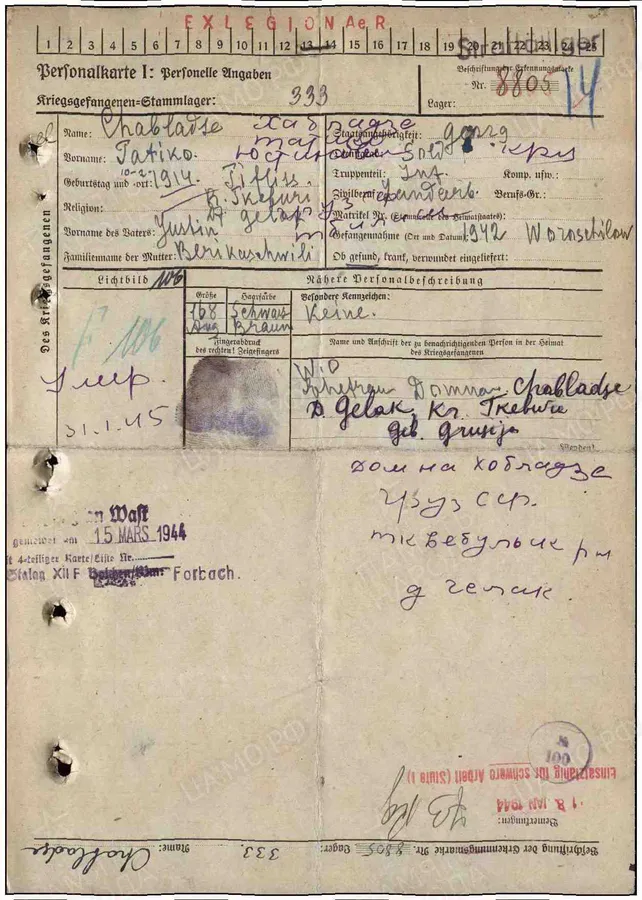 EXLEGIONAeR
1 2 3 4 5 6 7 8 9 10 11 12 13 14 15 16 17 18 19 20 21 22 23 24 25
Personalkarte I: Personelle Angaben
Beschriftung der Erkennungsmarke
Nr. 8805
14
Kriegsgefangenen=Stammlager: 333
Lager:
Des Kriegsgefangenen
Name: Chabladse
Хабладзе
Staatsangehörigkeit: georg
Vorname: Tatiko.
Sold
Geburtstag und =ort: 10-2 1914. Tifliss.
Truppenteil: Inf.
Komp. usw.:
Religion:
Zivilberuf:
Berufs=Gr.:
Vorname des Vaters: Justin
Matrikel Nr.
Familienname der Mutter: Berikaschwili
Gefangennahme (Ort und Datum): 1942 Woroschilow
Ob gesund, krank, verwundet eingeliefert:
Lichtbild 106
Nähere Personalbeschreibung
Größe
Haarfarbe
Besondere Kennzeichen:
168
Schwarz
Keine.
Aug
Braun
F 106
Fingerabdruck
des rechten! Zeigefingers
Name und Anschrift der zu benachrichtigenden Person in der Heimat
des Kriegsgefangenen
умер.
31.1.45
Domna Chabladse
D. Gelak, Kr. Tkebule
geb. Grusija
Домна Хобладзе
Груз ССР.
д гелак.
15 MARS 1944
Stalag XII F Forbach.
№
100
Einsatzfähig für schwere Arbeit (Stufe 1)
18. JAN 1944
Bemerkungen:
Beschriftung der Erkennungsmarke Nr. 8805 Lager: 333 Name: Chabladse